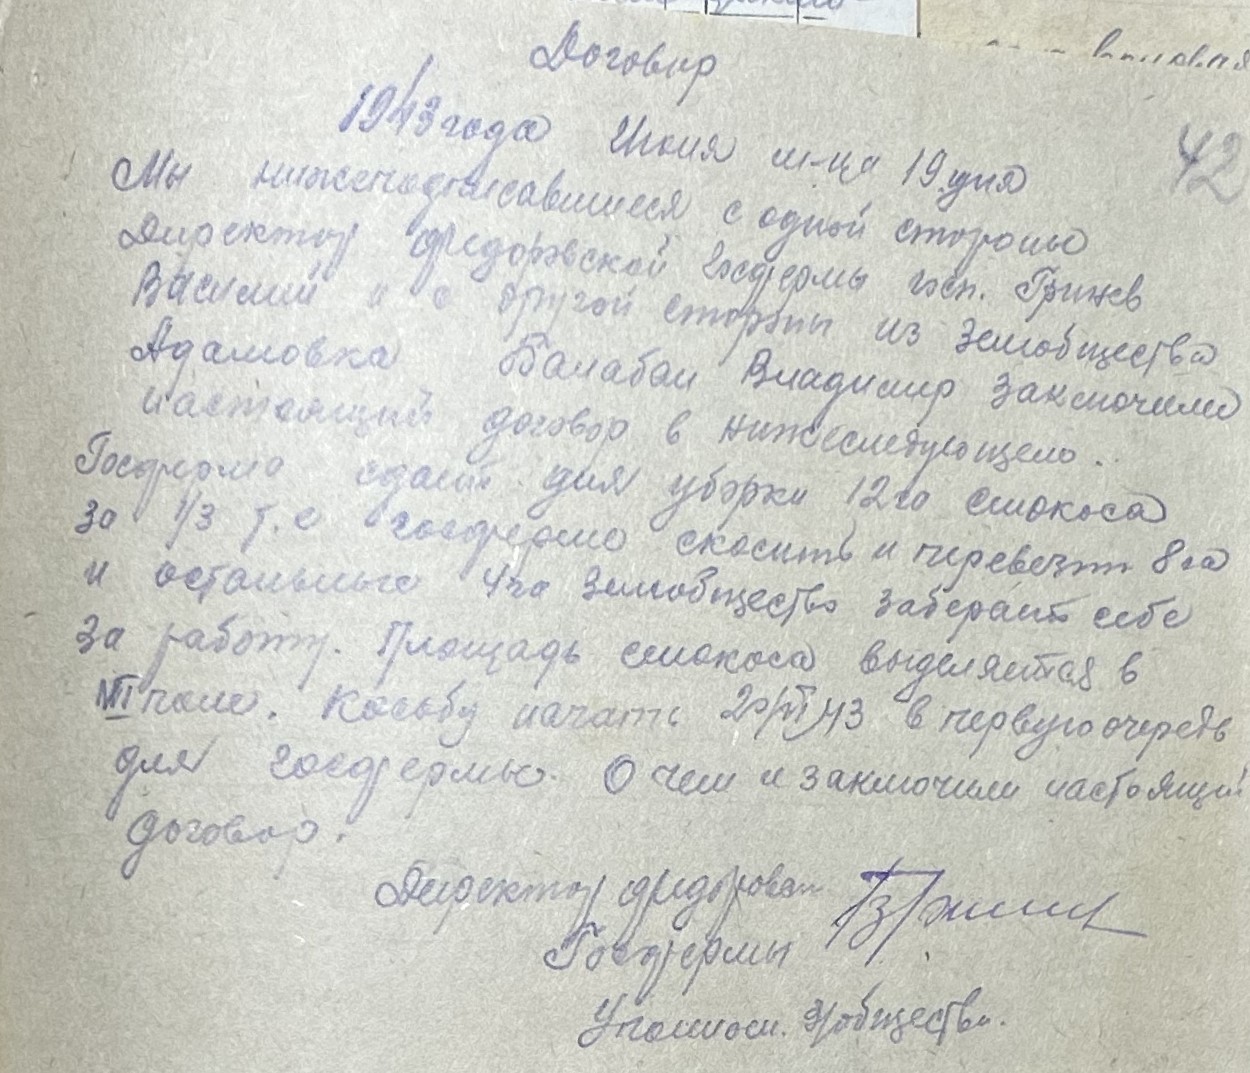 Договор
1943 года Июня м-ца 19 дня
42
Мы нижеподписавшиеся с одной стороны
Директор Федоровской Госфермы госп.
Василий и с другой стороны из Земобщества
Адамовка Балабан Владимир заключили
настоящий договор в нижеследующем.
Госферма сдает для уборки 12 га сенокоса
за 1/3 т.е госферме скосить и перевезти 8 га
и остальные 4 га Земобщество заберает себе
за работу. Площадь сенокоса выделяется в
поле. Косьбу начать 20/VI 43 в первую очередь
для госфермы. О чем и заключили настоящий
договор.
Директор Федоровск
Госфермы
Уполном. З/общества.